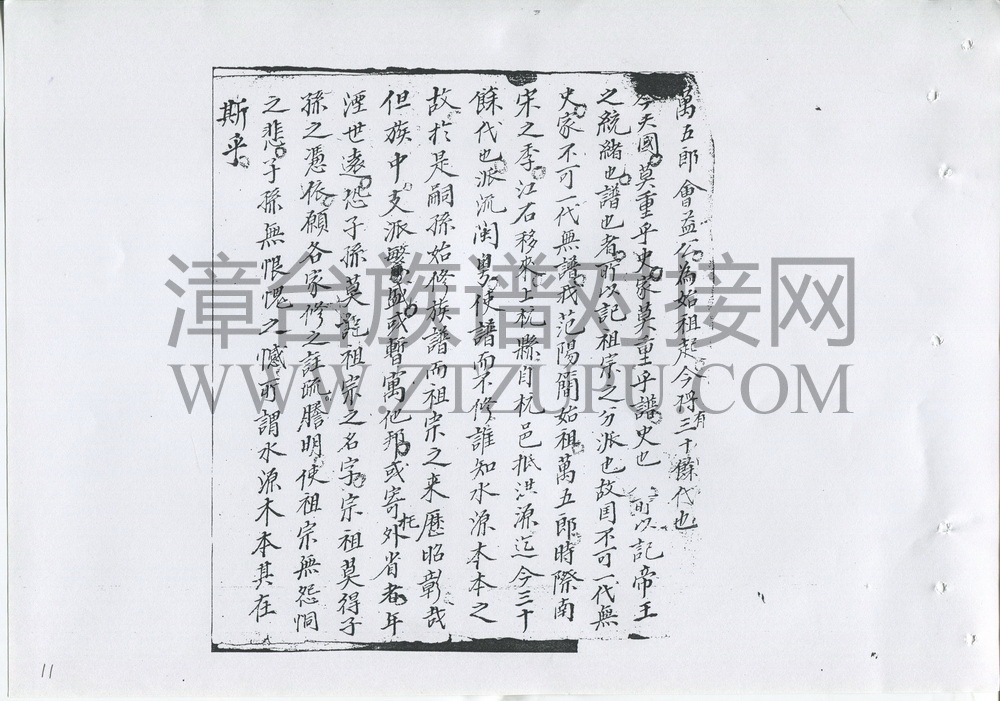 萬五郎會益公為始祖起今得有三十餘代也
今夫國莫重乎史家莫重乎譜史也 所以記帝王
之統緒也譜也者所以記祖宗之分派也故国不可一代無
史家不可一代無譜我范陽簡始祖萬五郎時際南
宋之季江右移來上杭縣自杭邑抵洪源迄今三十
餘代也派流闽粤使譜而不修誰知水源本本之
故於是嗣孫始修族譜而祖宗之来歷昭彰哉
但族中支派繁盛或暫寓他邦或寄托外省者年
湮世遠恐子孫莫識祖宗之名字宗祖莫得子
孫之憑依願各家修之註疏謄明使祖宗無怨恫
之悲子孫無恨愧之憾所謂水源木本其在
斯乎
漳台族谱对接网
WWW.ZTZUPU.COM
11